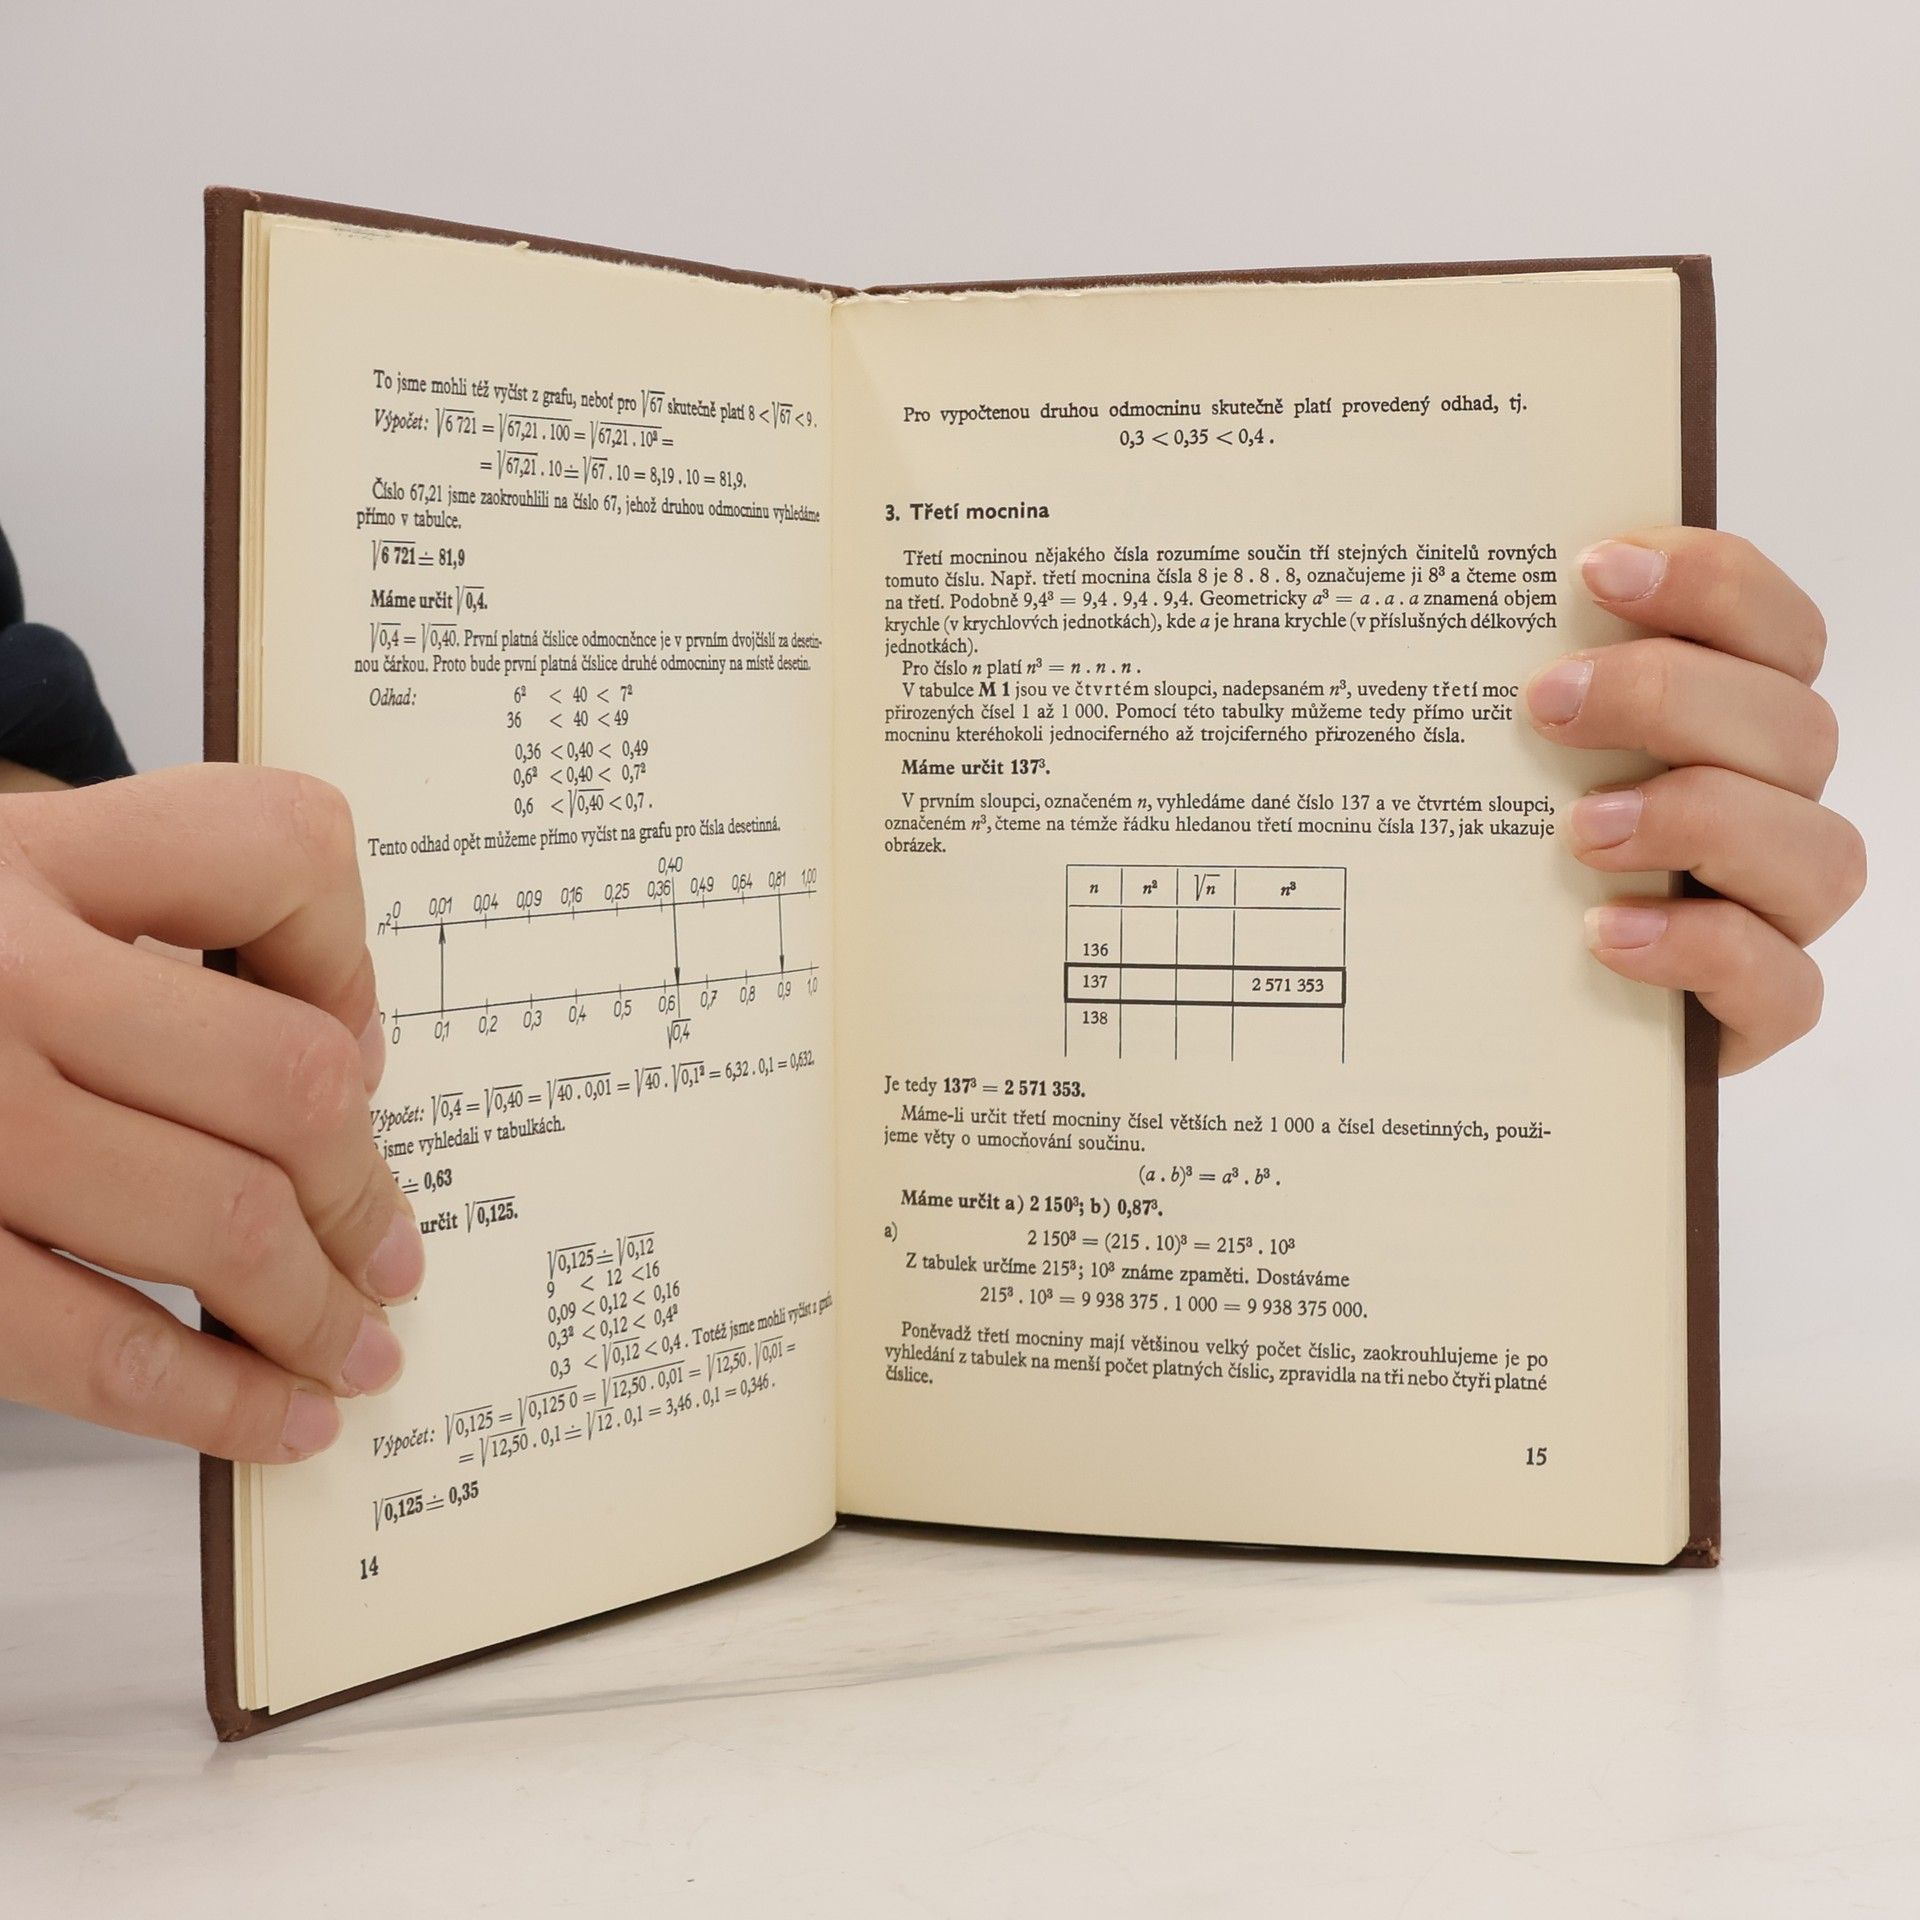 To jsme mohli též vyčíst z grafu, neboť pro √67 skutečně platí 8 < √67 < 9.
Výpočet: √6 721 = √67,21 . 100 = √67,21 . 10² =
= √67,21 . 10 ≐ √67 . 10 = 8,19 . 10 = 81,9.
Číslo 67,21 jsme zaokrouhlili na číslo 67, jehož druhou odmocninu vyhledáme
přímo v tabulce.
√6 721 ≐ 81,9
Máme určit √0,4.
√0,4 = √0,40. První platná číslice odmocněnce je v prvním dvojčíslí za desetin-
nou čárkou. Proto bude první platná číslice druhé odmocniny na místě desetin.
Odhad: 6² < 40 < 7²
36 < 40 < 49
0,36 < 0,40 < 0,49
0,6² < 0,40 < 0,7²
0,6 < √0,40 < 0,7.
Tento odhad opět můžeme přímo vyčíst na grafu pro čísla desetinná.
0,40
n² 0 0,01 0,04 0,09 0,16 0,25 0,36 0,49 0,64 0,81 1,00
0 0,1 0,2 0,3 0,4 0,5 0,6 0,7 0,8 0,9 1,0
√0,4
Výpočet: √0,4 = √0,40 = √40 . 0,01 = √40 . √0,1² = 6,32 . 0,1 = 0,632.
jsme vyhledali v tabulkách.
≐ 0,63
určit √0,125.
√0,125 ≐ √0,12
9 < 12 < 16
0,09 < 0,12 < 0,16
0,3² < 0,12 < 0,4²
0,3 < √0,12 < 0,4. Totéž jsme mohli vyčíst z grafu.
Výpočet: √0,125 = √0,125 0 = √12,50 . 0,01 = √12,50 . √0,01 =
= √12,50 . 0,1 ≐ √12 . 0,1 = 3,46 . 0,1 = 0,346.
√0,125 ≐ 0,35
14
Pro vypočtenou druhou odmocninu skutečně platí provedený odhad, tj.
0,3 < 0,35 < 0,4.
3. Třetí mocnina
Třetí mocninou nějakého čísla rozumíme součin tří stejných činitelů rovných
tomuto číslu. Např. třetí mocnina čísla 8 je 8 . 8 . 8, označujeme ji 8³ a čteme osm
na třetí. Podobně 9,4³ = 9,4 . 9,4 . 9,4. Geometricky a³ = a . a . a znamená objem
krychle (v krychlových jednotkách), kde a je hrana krychle (v příslušných délkových
jednotkách).
Pro číslo n platí n³ = n . n . n.
V tabulce M 1 jsou ve čtvrtém sloupci, nadepsaném n³, uvedeny třetí moc
přirozených čísel 1 až 1 000. Pomocí této tabulky můžeme tedy přímo určit
mocninu kteréhokoli jednociferného až trojciferného přirozeného čísla.
Máme určit 137³.
V prvním sloupci, označeném n, vyhledáme dané číslo 137 a ve čtvrtém sloupci,
označeném n³, čteme na témže řádku hledanou třetí mocninu čísla 137, jak ukazuje
obrázek.
n n² √n n³
136
137 2 571 353
138
Je tedy 137³ = 2 571 353.
Máme-li určit třetí mocniny čísel větších než 1 000 a čísel desetinných, použi-
jeme věty o umocňování součinu.
(a . b)³ = a³ . b³.
Máme určit a) 2 150³; b) 0,87³.
a) 2 150³ = (215 . 10)³ = 215³ . 10³
Z tabulek určíme 215³; 10³ známe zpaměti. Dostáváme
215³ . 10³ = 9 938 375 . 1 000 = 9 938 375 000.
Poněvadž třetí mocniny mají většinou velký počet číslic, zaokrouhlujeme je po
vyhledání z tabulek na menší počet platných číslic, zpravidla na tři nebo čtyři platné
číslice.
15